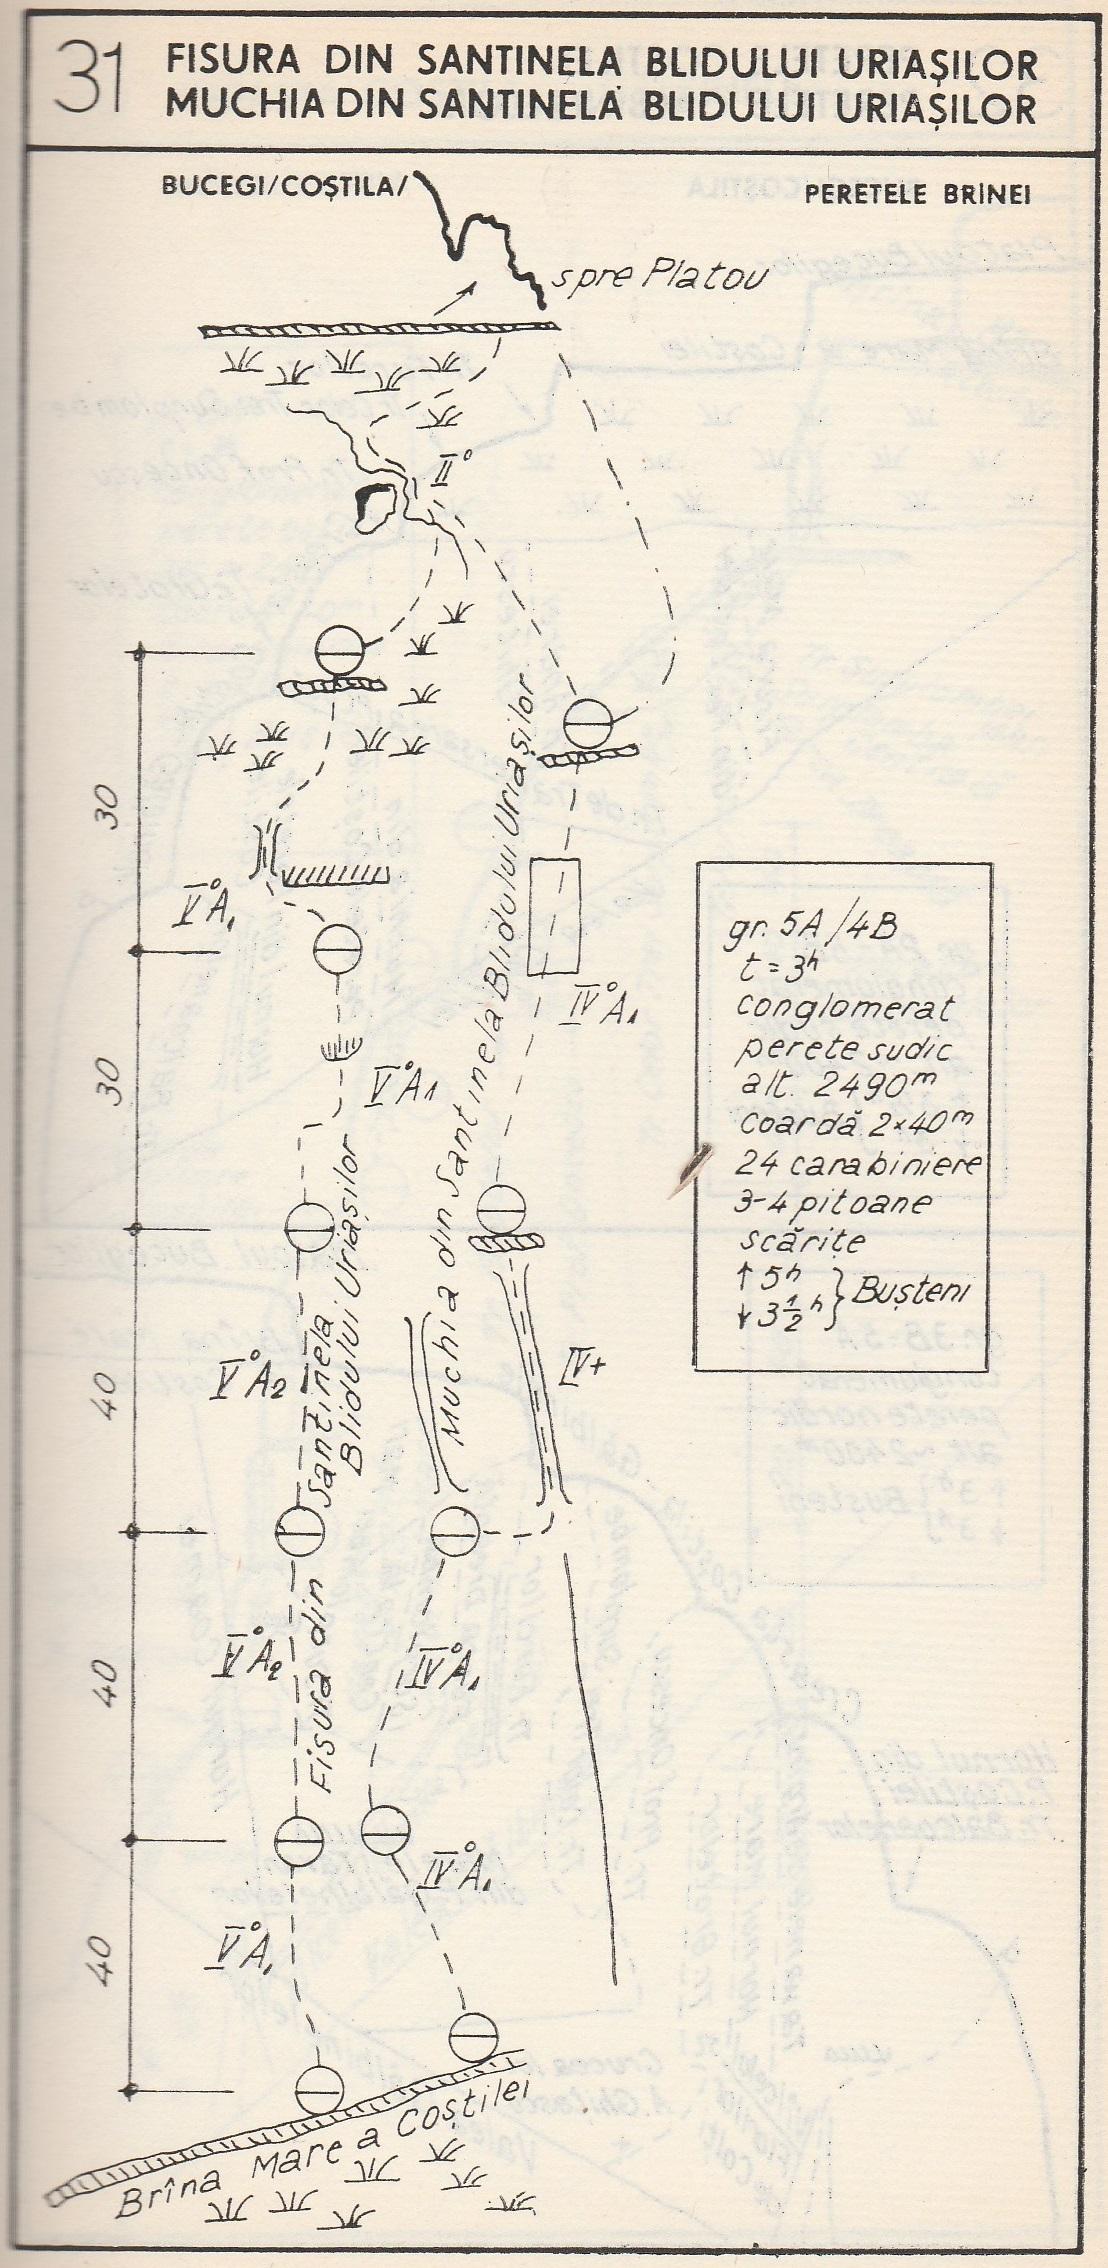 31
FISURA DIN SANTINELA BLIDULUI URIAȘILOR
MUCHIA DIN SANTINELA BLIDULUI URIAȘILOR
BUCEGI/COȘTILA/
PERETELE BRÎNEI
spre Platou
II°
30
V° A1
IV° A1
30
V° A1
Muchia din Santinela Blidului Uriașilor
gr. 5A/4B
t = 3h
conglomerat
perete sudic
alt. 2490m
coardă 2×40m
24 carabiniere
3-4 pitoane
scărițe
↑ 5h
↓ 3 1/2 h } Bușteni
40
V° A2
Fisura din Santinela
Blidului Uriașilor
IV+
40
V° A2
IV° A1
IV° A1
40
V° A1
Brîna Mare a Coștilei